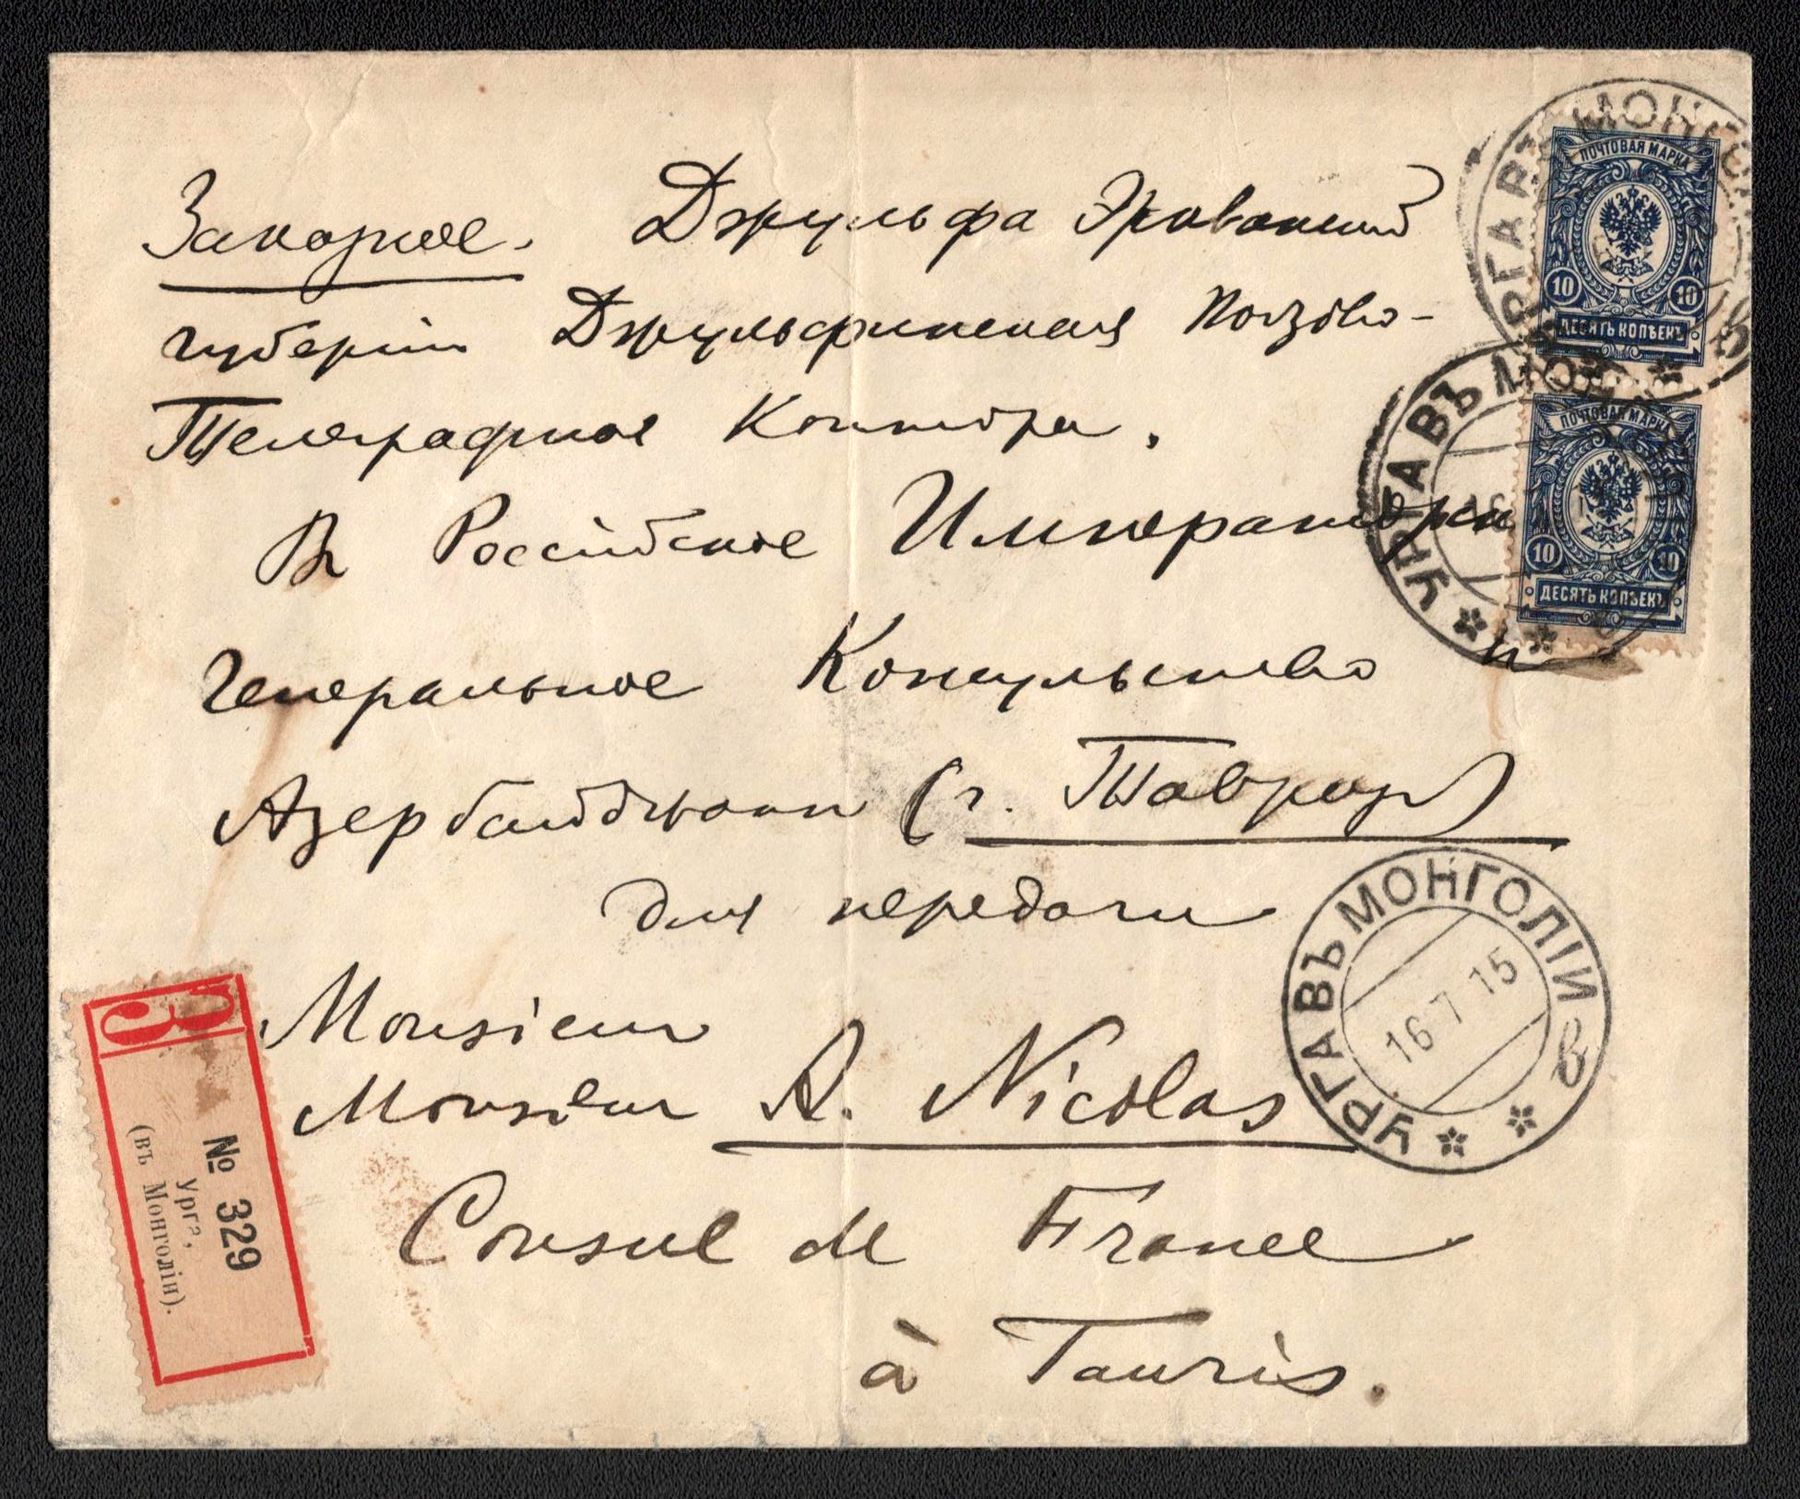 Заказное. Джульфа Эриванской
губерніи Джульфинская Почтово-
Телеграфная Контора.
Въ Россійское Императорск
Генеральное Консульство
Азербайджанъ (г. Тавризъ)
для передачи
Monsieur
Monsieur A. Nicolas
Consul de France
à Tauris.
ПОЧТОВАЯ МАРКА
10 10
ДЕСЯТЬ КОПѢЕКЪ
ПОЧТОВАЯ МАРКА
10 10
ДЕСЯТЬ КОПѢЕКЪ
УРГА ВЪ МОНГОЛІИ
УРГА ВЪ МОН
УРГА ВЪ МОНГОЛІИ в
16 7 15
№ 329
Урга,
(въ Монголіи).